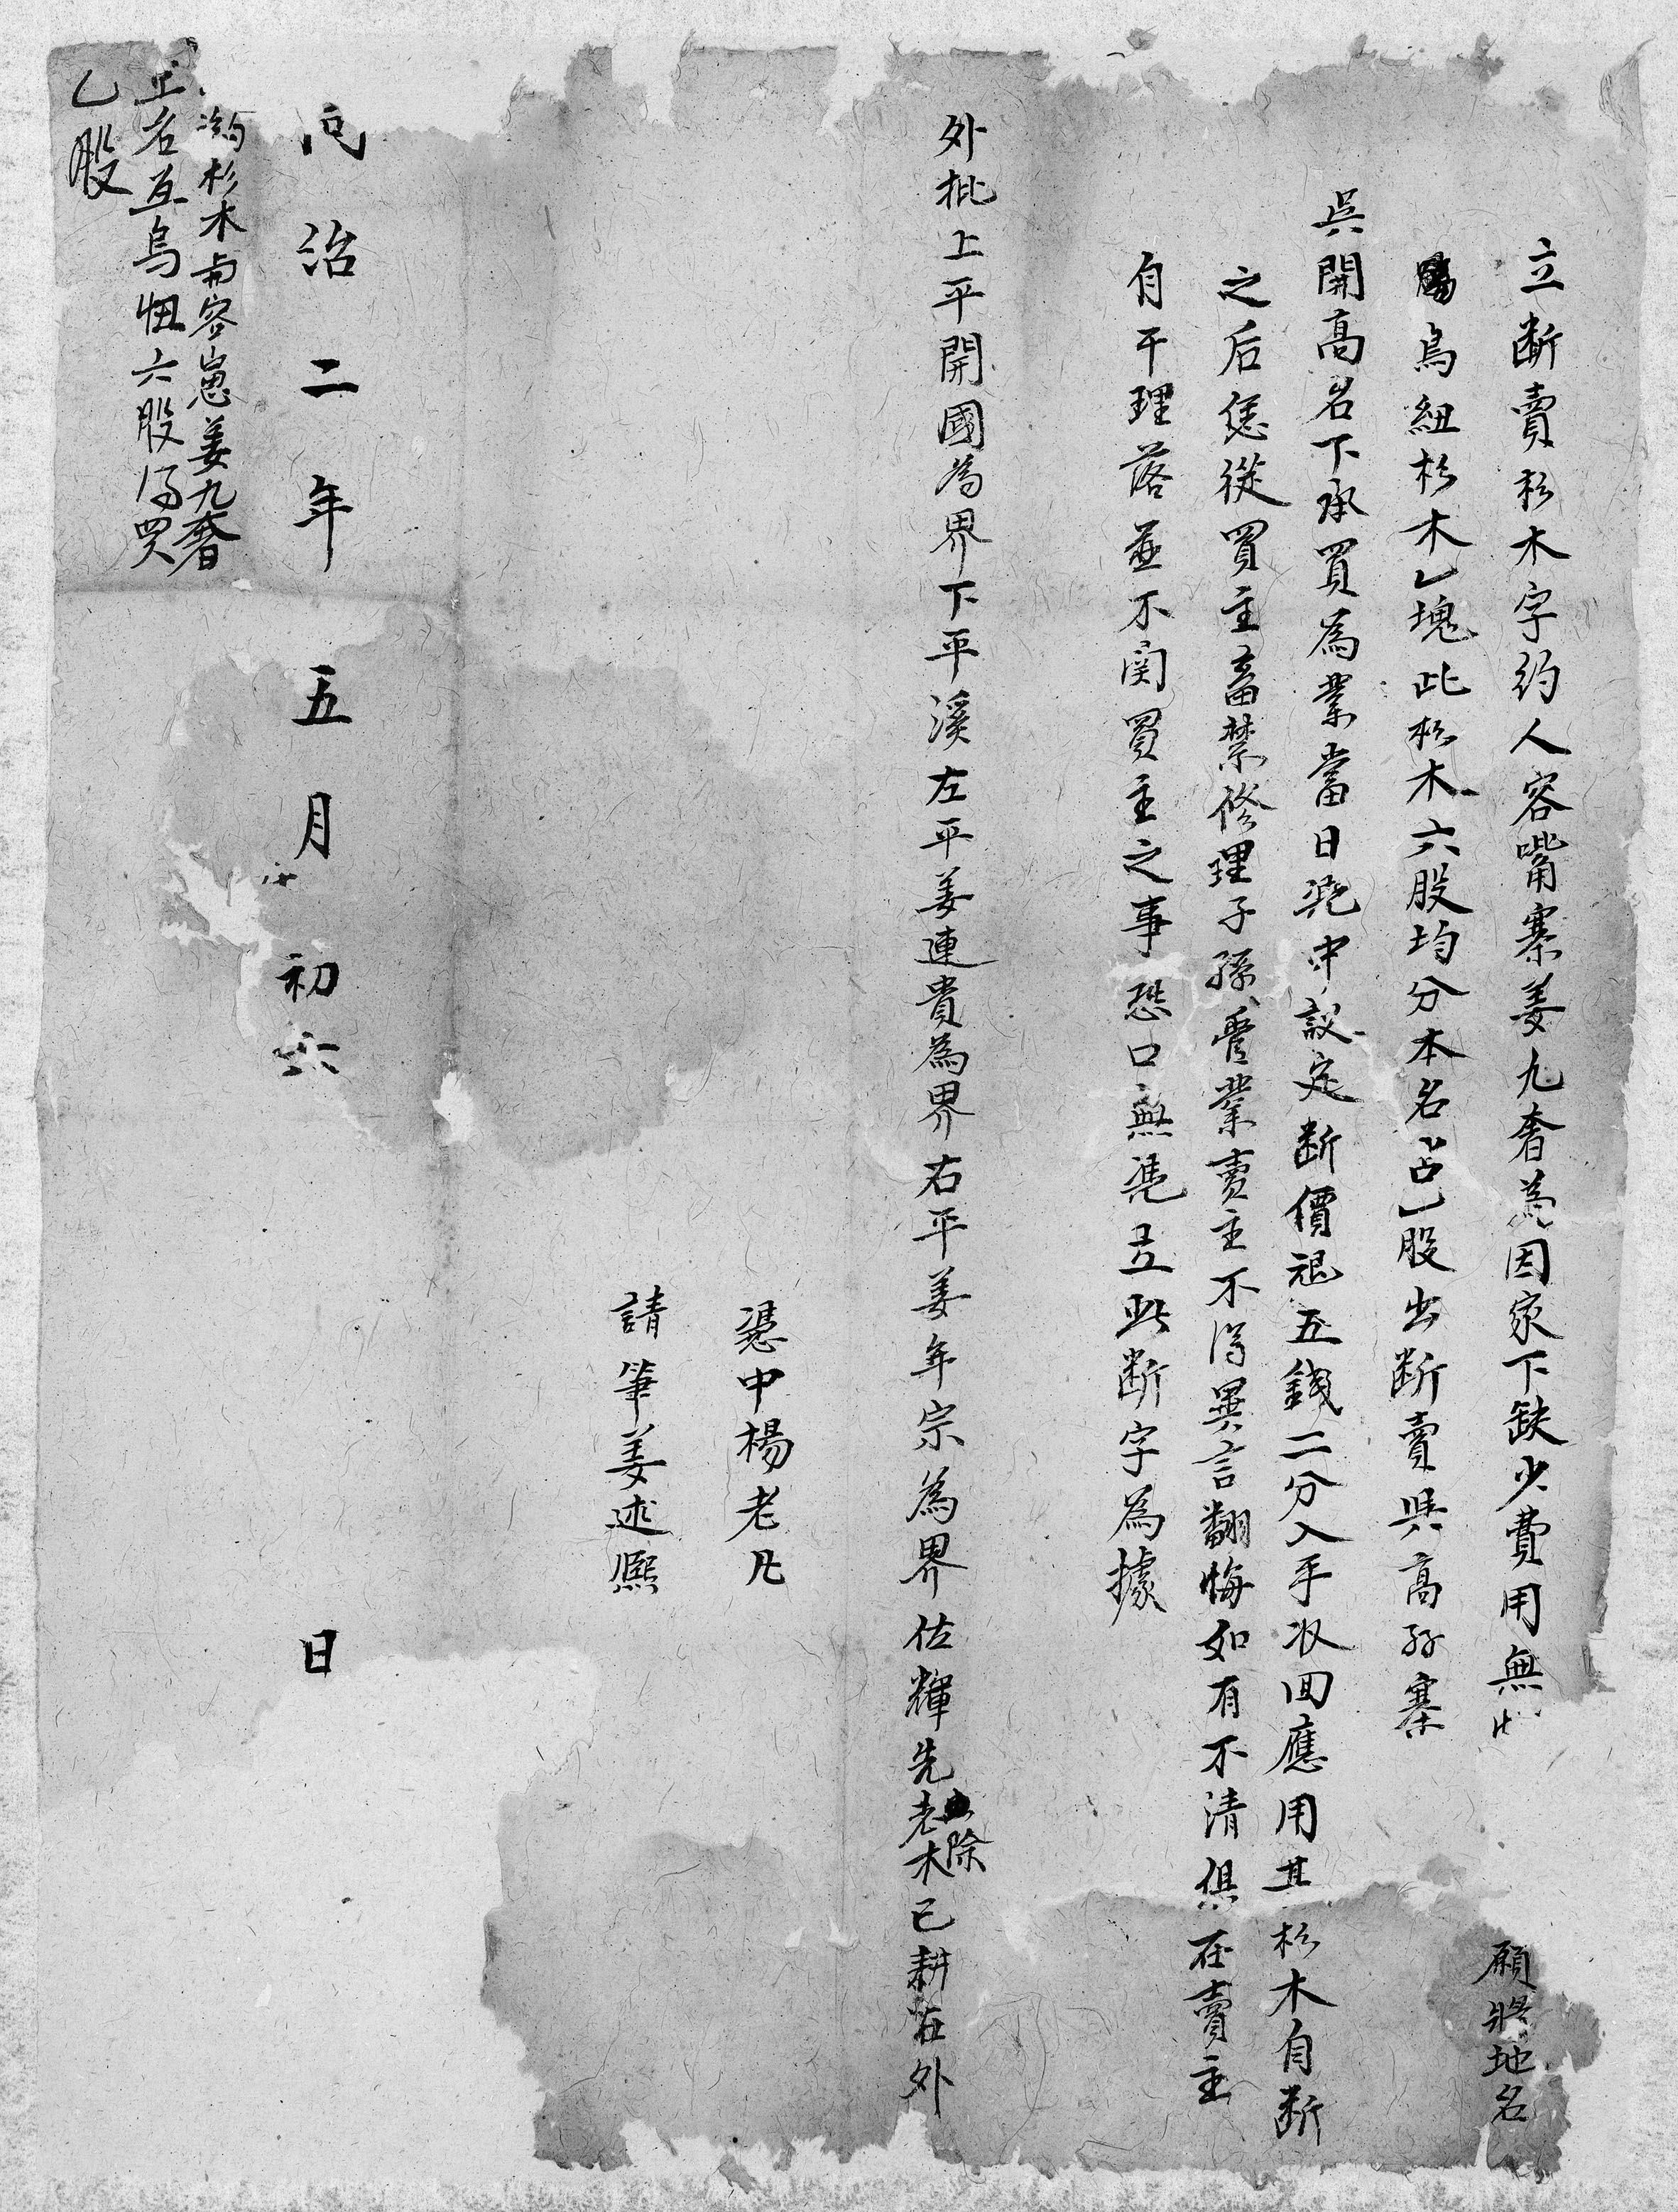 立断賣杉木字約人容嘴寨姜九奢為因家下缺少費用無 願將地名
烏紐杉木乙塊此杉木六股均分本名占乙股出断賣與髙孖寨
吳開髙名下承買為業當日凴中議定断價艮五錢二分入手收囬應用其杉木自断
之后恁從買主畜禁修理子孫管業賣主不得異言翻悔如有不清俱在賣主
自干理落並不関買主之事恐口無凴立此断字為據
外批上平開國為界下平溪左平姜連貴為界右平姜年宗為界佐輝先老木已耕在外
除
憑中楊老凡
請筆姜述熙
同治二年五月初六日
杉木與容嵬姜九奢
名互烏忸六股得買
乙股